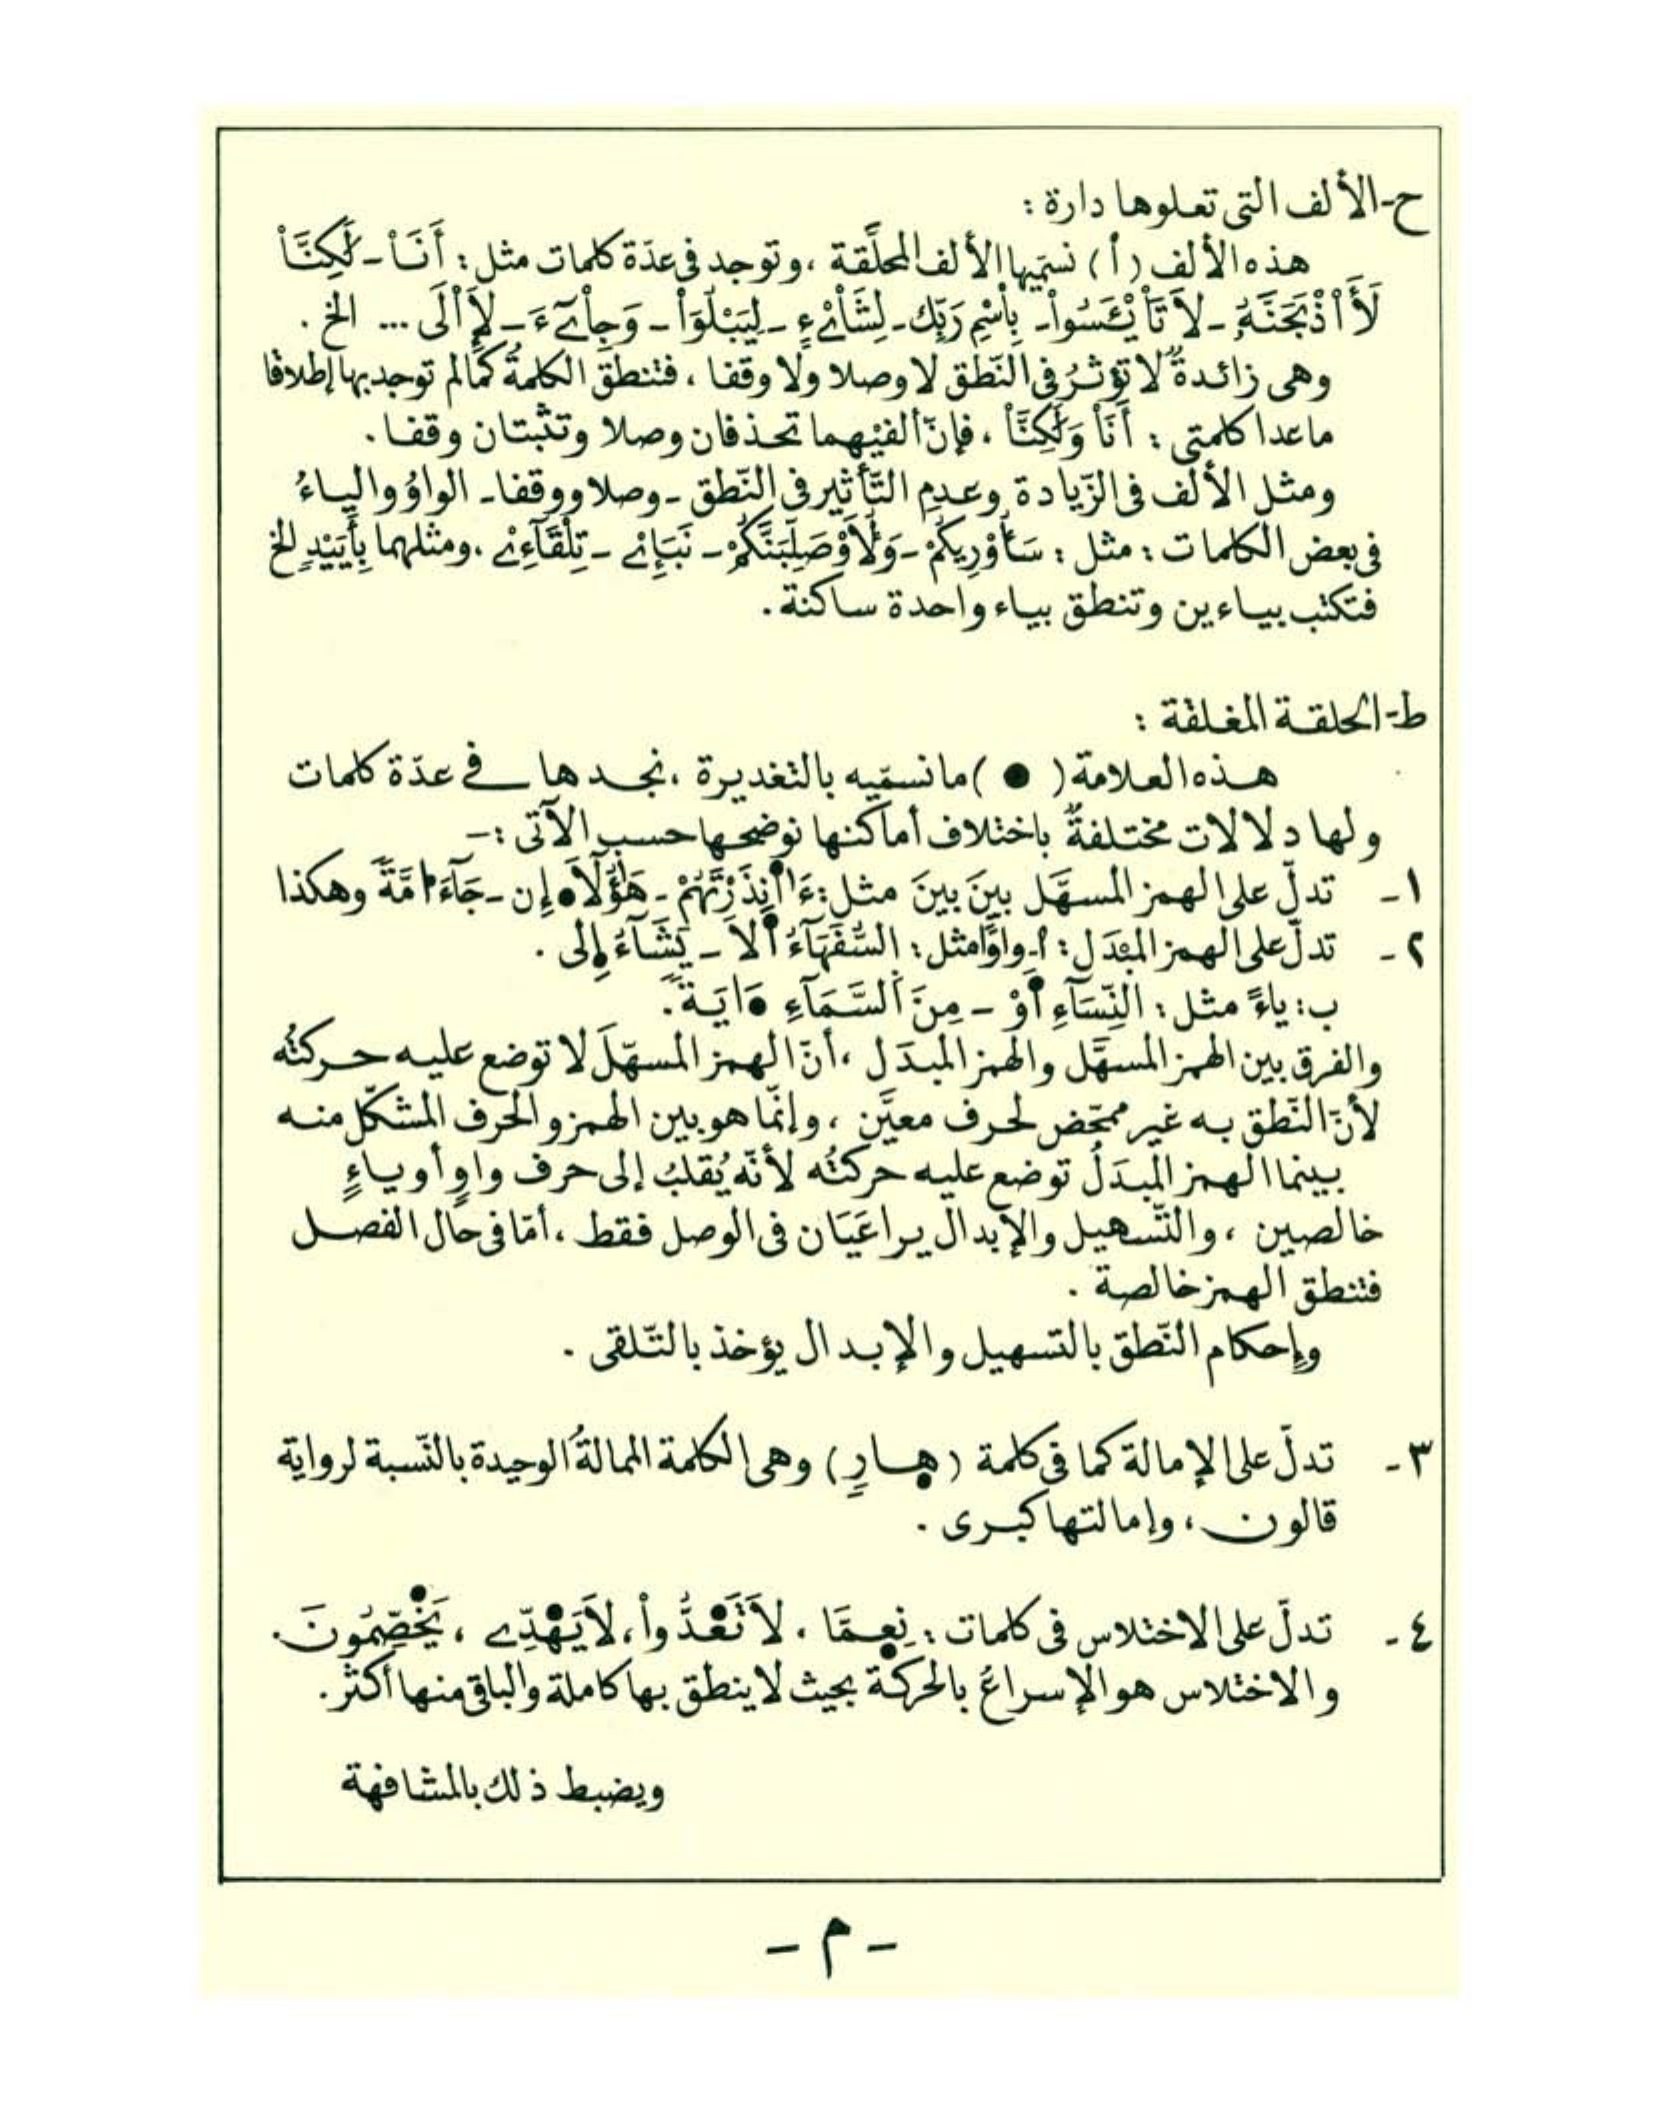 ح-الألف التى تعلوها دارة :
هذه الألف (اْ) نسمّيها الألف المحلَّقة ، وتوجد فى عدّة كلمات مثل : أَنَاْ - لَٰكِنَّاْ
لَأَاْذْبَحَنَّهُۥ - لاَ تَاْيْـَٔسُواْ - بِاْسْمِ رَبِّك - لِشَاْىْءٍ - لِيَبْلُوَاْ - وَجِاْىٓءَ - لِإَاْلَى ... الخ .
وهى زائدةٌ لا تؤثرُ فى النّطق لا وصلا ولا وقفا ، فتنطق الكلمةُ كما لم توجد بها إطلاقا
ماعدا كلمتى : أَنَاْ وَلَٰكِنَّاْ ، فإنّ ألفيْهما تحذفان وصلا وتثبتان وقفا .
ومثل الألف فى الزّيادة وعدمِ التّأثير فى النّطق - وصلا ووقفا - الواوُ والياءُ
فى بعض الكلمات : مثل : سَأُوْرِيكُمْ - وَلَأُوْصَلِّبَنَّكُمْ - نَبَإِےْ - تِلْقَآءِےْ ، ومثلهما بِأَيَيْدٍ الخ
فتكتب بياءين وتنطق بياء واحدة ساكنة .
ط-الحلقة المغلقة :
هذه العلامة ( ● ) ما نسمّيه بالتغديرة ، نجدها في عدّة كلمات
ولها دلالات مختلفةٌ باختلاف أماكنها نوضحها حسب الآتى :-
١- تدلّ على الهمز المسهَّل بينَ بينَ مثل : ءَا۬نذَرْتَهُمْ - هَٰٓؤُلَآ●إِن - جَآءَ ا●مَّةً وهكذا
٢- تدلّ على الهمز المبْدَل : أ- واوًا مثل : السُّفَهَآءُ اَ●لاَ - يَشَآءُ اِ●لى .
ب: ياءً مثل : النِّسَآءِ اَ●وْ - مِنَ اَ۬لسَّمَآءِ ●َايَةً .
والفرق بين الهمز المسهَّل والهمز المبدَل ، أنّ الهمز المسهّلَ لا توضع عليه حركتُه
لأنّ النّطق به غير ممحّض لحرف معيَّن ، وإنّما هو بين الهمز والحرف المشكّل منه
بينما الهمز المبدَلُ توضع عليه حركتُه لأنّه يُقلبُ إلى حرف واوٍ أو ياءٍ
خالصين ، والتّسهيل والإبدال يراعَيَان فى الوصل فقط ، أمّا فى حال الفصل
فتنطق الهمز خالصة .
وإحكام النّطق بالتّسهيل والإبدال يؤخذ بالتّلقى .
٣- تدلّ على الإمالة كما فى كلمة (هِ●ارٍ) وهى الكلمة الممالةُ الوحيدة بالنّسبة لرواية
قالون ، وإمالتها كبرى .
٤- تدلّ على الاختلاس فى كلمات : نِعِ●مَّا ، لاَ تَعْ●دُّواْ ، لاَ يَهْ●دِّے ، يَخْ●صِّمُونَ .
والاختلاس هو الإسراعُ بالحركة بحيث لا ينطق بها كاملة والباقى منها أكثر .
ويضبط ذلك بالمشافهة
- م -